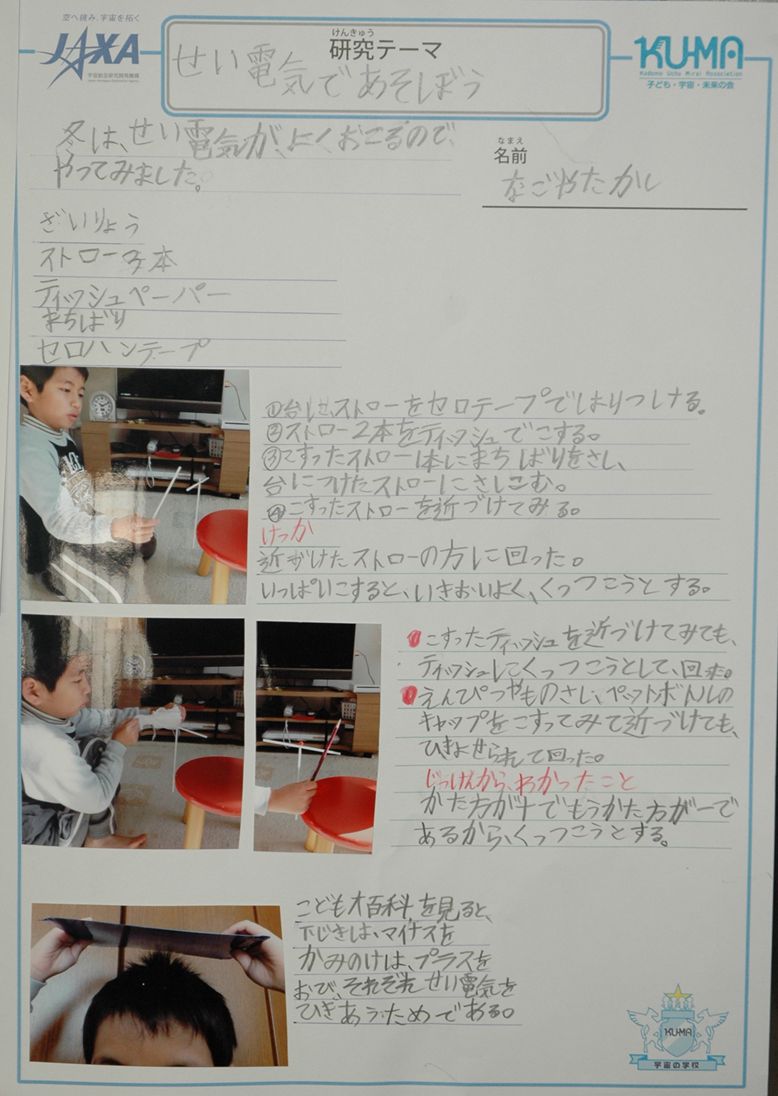 空へ挑み、宇宙を拓く
JAXA
宇宙航空研究開発機構
けんきゅう
研究テーマ
せい電気であそぼう
KU-MA
Kodomo Uchu Mirai Association
子ども・宇宙・未来の会
冬は、せい電気が、よくおこるので、
やってみました。
なまえ
名前
なごやたかし
ざいりょう
ストロー3本
ティッシュペーパー
まちばり
セロハンテープ
①台に、ストローをセロテープではりつける。
②ストロー2本をティッシュでこする。
③こすったストロー1本にまちばりをさし、
台につけたストローにさしこむ。
④こすったストローを近づけてみる。
けっか
近づけたストローの方に回った。
いっぱいこすると、いきおいよく、くっつこうとする。
こすったティッシュを近づけてみても、
ティッシュにくっつこうとして、回る。
えんぴつやものさし、ペットボトルの
キャップをこすってみて近づけても、
ひきよせられて回った。
じっけんから、わかったこと
かた方が+でもうかた方が-で
あるから、くっつこうとする。
こども大百科を見ると、
下じきは、マイナスを
かみのけは、プラスを
おび、それぞれせい電気を
ひきあうためである。
KU-MA
宇宙の学校